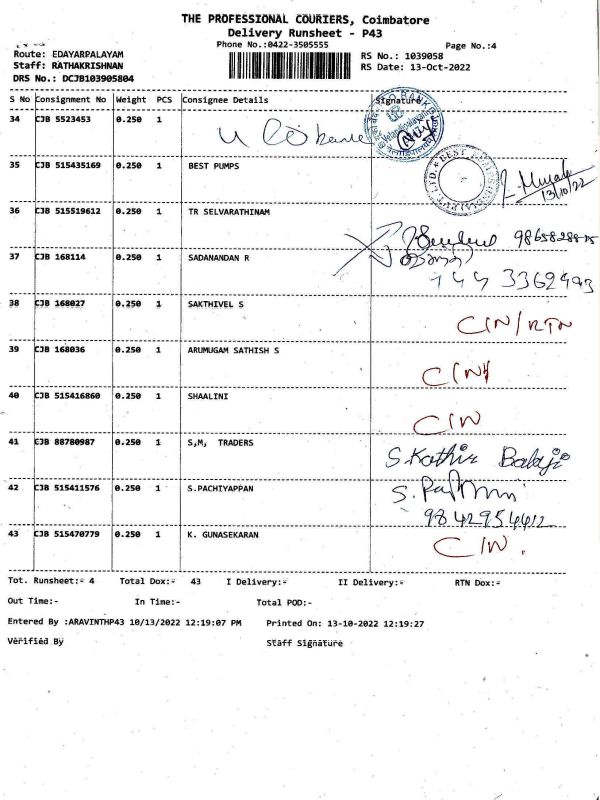 THE PROFESSIONAL COURIERS, Coimbatore
Delivery Runsheet - P43
Phone No.:0422-3505555 Page No.:4
Route: EDAYARPALAYAM RS No.: 1039058
Staff: RATHAKRISHNAN RS Date: 13-Oct-2022
DRS No.: DCJB103905804
S No Consignment No Weight PCS Consignee Details Signature
34 CJB 5523453 0.250 1
35 CJB 515435169 0.250 1 BEST PUMPS
13/10/22
36 CJB 515519612 0.250 1 TR SELVARATHINAM
37 CJB 168114 0.250 1 SADANANDAN R
38 CJB 168027 0.250 1 SAKTHIVEL S
C/N/RTN
39 CJB 168036 0.250 1 ARUMUGAM SATHISH S
40 CJB 515416860 0.250 1 SHAALINI
C/N
41 CJB 88780987 0.250 1 S,M, TRADERS
S.Kathir Balaji
42 CJB 515411576 0.250 1 S.PACHIYAPPAN
9842954412
43 CJB 515470779 0.250 1 K. GUNASEKARAN
C/N.
Tot. Runsheet:- 4 Total Dox:- 43 I Delivery:- II Delivery:- RTN Dox:-
Out Time:- In Time:- Total POD:-
Entered By :ARAVINTHP43 10/13/2022 12:19:07 PM Printed On: 13-10-2022 12:19:27
Verified By Staff Signature